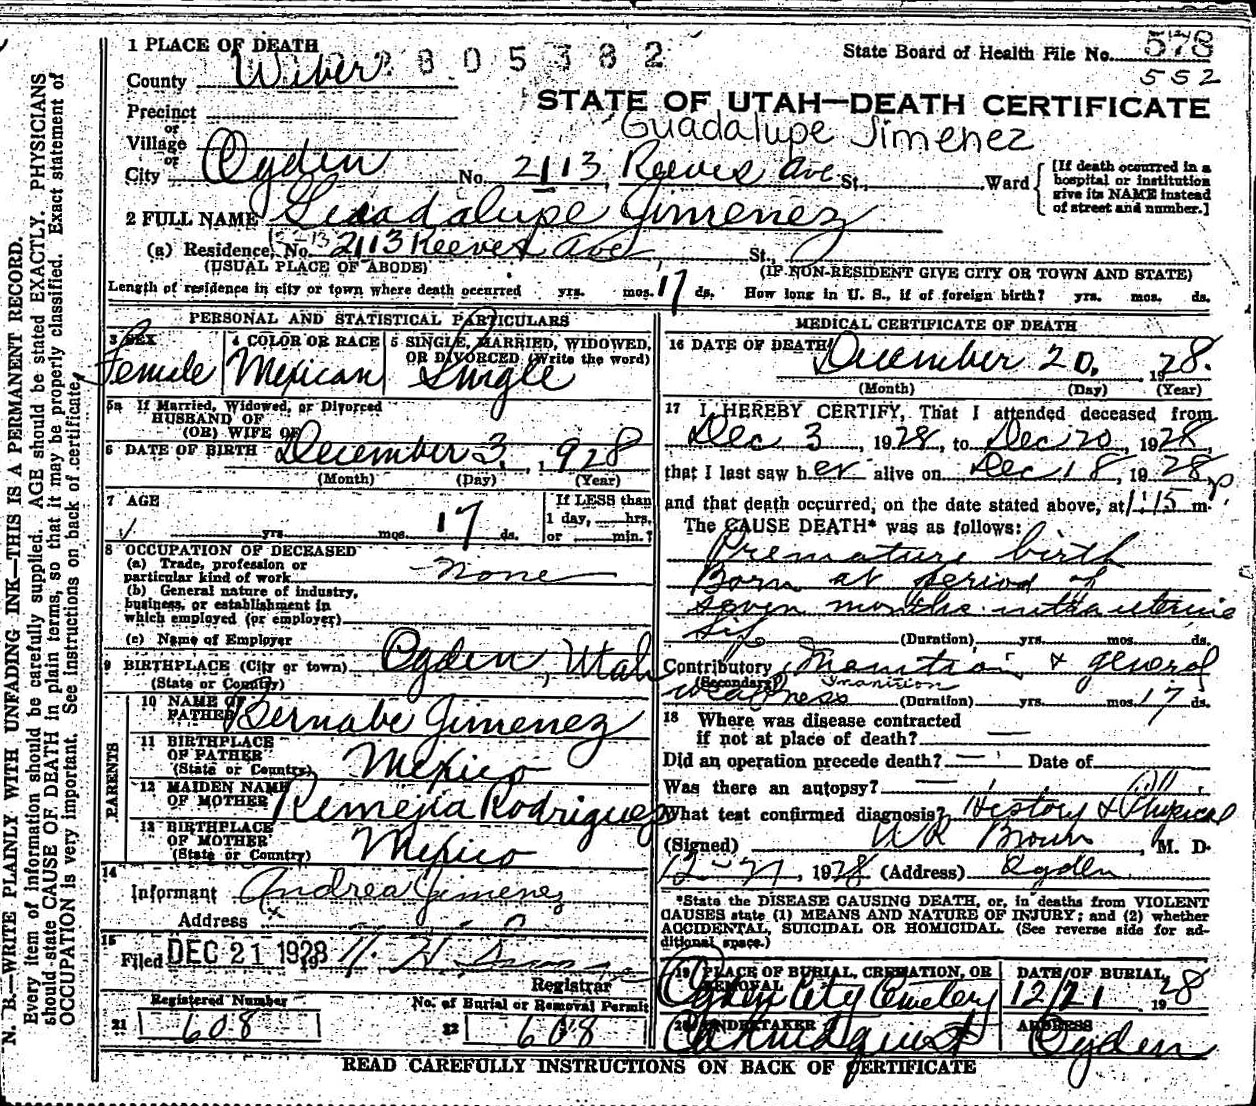 N. B.—WRITE PLAINLY WITH UNFADING INK—THIS IS A PERMANENT RECORD.
Every item of information should be carefully supplied. AGE should be stated EXACTLY. PHYSICIANS
should state CAUSE OF DEATH in plain terms, so that it may be properly classified. Exact statement of
OCCUPATION is very important. See instructions on back of certificate.
1 PLACE OF DEATH 805382 State Board of Health File No. 578
County Weber 552
Precinct STATE OF UTAH—DEATH CERTIFICATE
or
Village Guadalupe Jimenez
or
City Ogden No. 2113 Reeves Ave St., Ward [If death occurred in a hospital or institution give its NAME instead of street and number.]
2 FULL NAME Guadalupe Jimenez
(a) Residence, No. 2113 Reeves Ave St.,
(USUAL PLACE OF ABODE) (IF NON-RESIDENT GIVE CITY OR TOWN AND STATE)
Length of residence in city or town where death occurred yrs. mos. 17 ds. How long in U. S., if of foreign birth? yrs. mos. ds.
PERSONAL AND STATISTICAL PARTICULARS
3 SEX 4 COLOR OR RACE 5 SINGLE, MARRIED, WIDOWED, OR DIVORCED (Write the word)
Female Mexican Single
5a If Married, Widowed, or Divorced
HUSBAND OF
(OR) WIFE OF
6 DATE OF BIRTH December 3, 1928
(Month) (Day) (Year)
7 AGE If LESS than
yrs. mos. 17 ds. 1 day, hrs. or min.?
8 OCCUPATION OF DECEASED
(a) Trade, profession or
particular kind of work none
(b) General nature of industry,
business, or establishment in
which employed (or employer)
(c) Name of Employer
9 BIRTHPLACE (City or town) Ogden, Utah
(State or Country)
PARENTS
10 NAME OF FATHER Bernabe Jimenez
11 BIRTHPLACE OF FATHER (State or Country) Mexico
12 MAIDEN NAME OF MOTHER Remejia Rodriguez
13 BIRTHPLACE OF MOTHER (State or Country) Mexico
14
Informant Andrea Jimenez
Address
15
Filed DEC 21 1928 19
Registrar
Registered Number No. of Burial or Removal Permit
21 608 22 608
MEDICAL CERTIFICATE OF DEATH
16 DATE OF DEATH December 20, 1928.
(Month) (Day) (Year)
17 I HEREBY CERTIFY, That I attended deceased from
Dec 3, 1928, to Dec 20, 1928,
that I last saw her alive on Dec 18, 1928
and that death occurred, on the date stated above, at 1:15 p. m.
The CAUSE DEATH* was as follows:
Premature birth
Born at period of
seven months intrauterine
life (Duration) yrs. mos. ds.
Contributory Inanition & general
(Secondary) Inanition
weakness (Duration) yrs. mos. 17 ds.
18 Where was disease contracted
if not at place of death? —
Did an operation precede death? — Date of
Was there an autopsy? —
What test confirmed diagnosis? History & Physical
(Signed) W R Brown, M. D.
12-21, 1928 (Address) Ogden
*State the DISEASE CAUSING DEATH, or, in deaths from VIOLENT
CAUSES state (1) MEANS AND NATURE OF INJURY; and (2) whether
ACCIDENTAL, SUICIDAL OR HOMICIDAL. (See reverse side for ad-
ditional space.)
19 PLACE OF BURIAL, CREMATION, OR REMOVAL DATE OF BURIAL,
Ogden City Cemetery 12/21 1928
20 UNDERTAKER ADDRESS
Ogden
READ CAREFULLY INSTRUCTIONS ON BACK OF CERTIFICATE